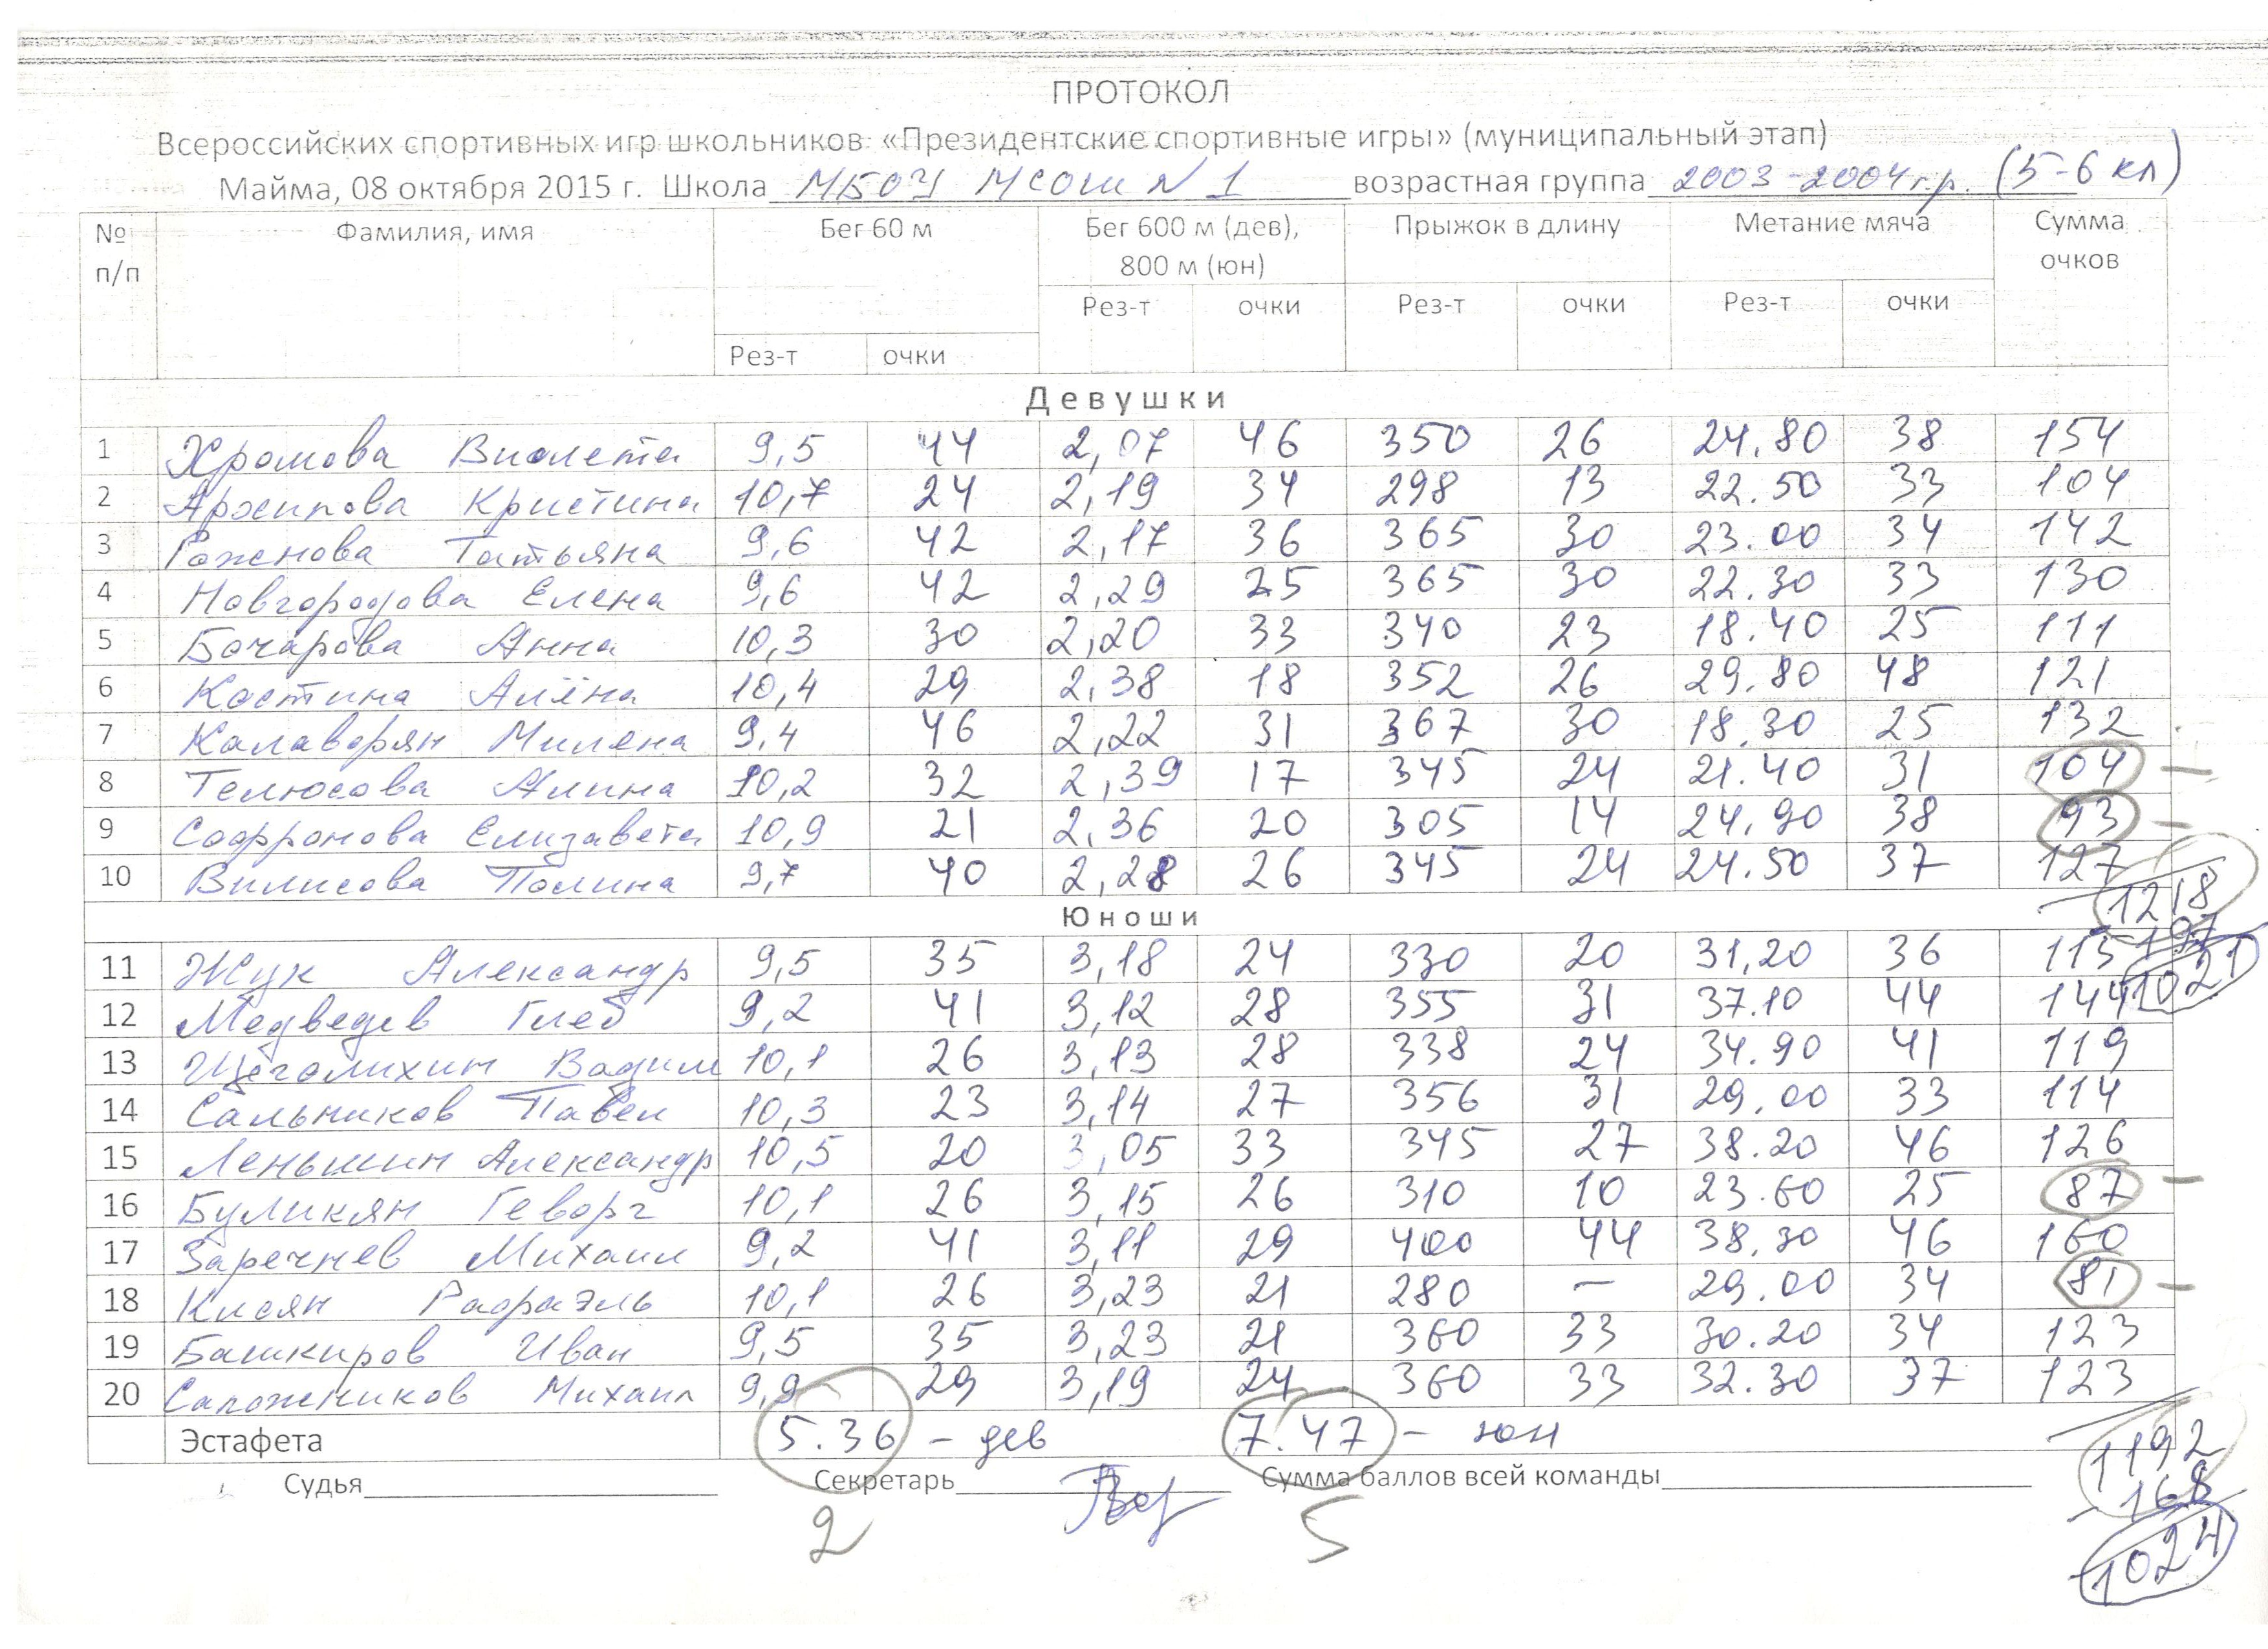 ПРОТОКОЛ
Всероссийских спортивных игр школьников «Президентские спортивные игры» (муниципальный этап)
Майма, 08 октября 2015 г. Школа МБОУ МСОШ N 1 возрастная группа 2003-2004 г.р. (5-6 кл)
№ п/п Фамилия, имя Бег 60 м Бег 600 м (дев), 800 м (юн) Прыжок в длину Метание мяча Сумма очков
Рез-т очки Рез-т очки Рез-т очки Рез-т очки
Девушки
1 Хромова Виолета 9,5 44 2,07 46 350 26 24.80 38 154
2 Архипова Кристина 10,7 24 2,19 34 298 13 22.50 33 104
3 Рожнова Татьяна 9,6 42 2,17 36 365 30 23.00 34 142
4 Новгородова Елена 9,6 42 2,29 25 365 30 22.30 33 130
5 Бочарова Анна 10,3 30 2,20 33 340 23 18.40 25 111
6 Костина Алёна 10,4 29 2,38 18 352 26 29.80 48 121
7 Калаворян Милена 9,4 46 2,22 31 367 30 18.30 25 132
8 Телюсова Алина 10,2 32 2,39 17 345 24 21.40 31 104 –
9 Софронова Елизавета 10,9 21 2,36 20 305 14 24,90 38 93 –
10 Вилисова Полина 9,7 40 2,28 26 345 24 24.50 37 127
1218
197
1021
Юноши
11 Жук Александр 9,5 35 3,18 24 330 20 31,20 36 115
12 Медведев Глеб 9,2 41 3,12 28 355 31 37.10 44 144
13 Щеголихин Вадим 10,1 26 3,13 28 338 24 34.90 41 119
14 Сальников Павел 10,3 23 3,14 27 356 31 29,00 33 114
15 Леньшин Александр 10,5 20 3,05 33 345 27 38.20 46 126
16 Буликян Геворг 10,1 26 3,15 26 310 10 23.60 25 87 –
17 Заречнев Михаил 9,2 41 3,11 29 400 44 38,30 46 160
18 Кисян Рафаэль 10,1 26 3,23 21 280 – 29.00 34 81 –
19 Башкиров Иван 9,5 35 3,23 21 360 33 30.20 34 123
20 Сапожников Михаил 9,9 29 3,19 24 360 33 32.30 37 123
Эстафета 5.36 – дев 7.47 – юн
1192
168
1024
Судья Секретарь Сумма баллов всей команды
2 5